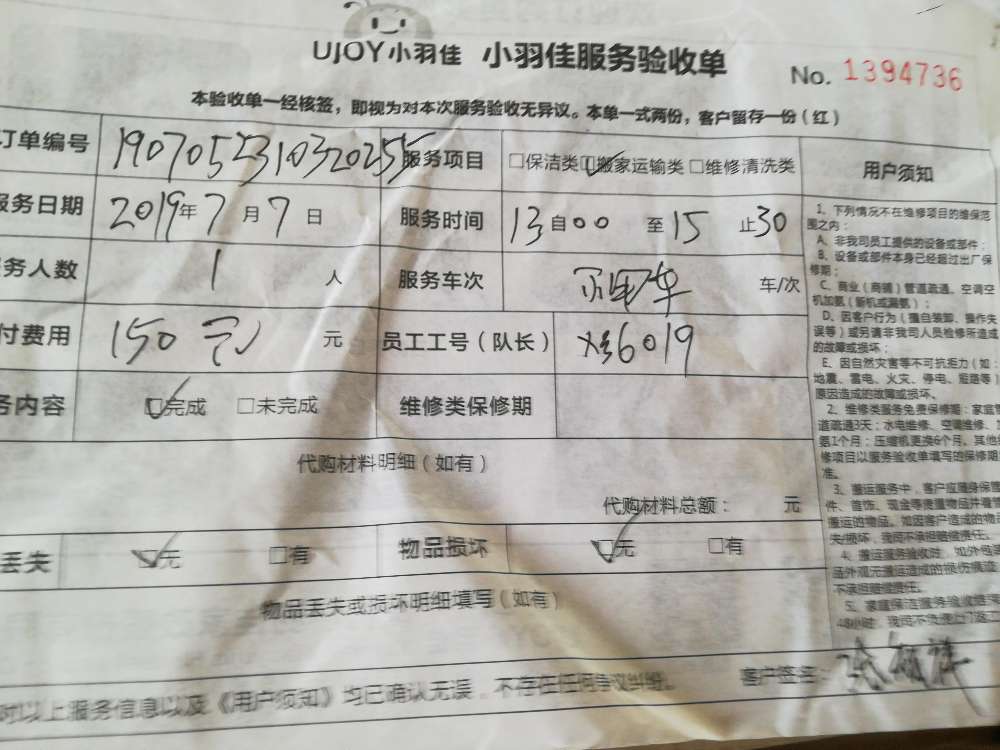 UJOY小羽佳 小羽佳服务验收单
No. 1394736
本验收单一经核签，即视为对本次服务验收无异议。本单一式两份，客户留存一份（红）
订单编号 190705231032025 服务项目 □保洁类 ☑搬家运输类 □维修清洗类
服务日期 2019年7月7日 服务时间 13自00 至15止30
务人数 1 人 服务车次 车/次
付费用 150元 元 员工工号（队长） 6019
务内容 ☑完成 □未完成 维修类保修期
代购材料明细（如有）
代购材料总额： 元
丢失 ☑无 □有 物品损坏 ☑无 □有
物品丢失或损坏明细填写（如有）
对以上服务信息以及《用户须知》均已确认无误，不存在任何争议纠纷。 客户签名：
用户须知
1、下列情况不在维修项目的维保范
围之内：
A、非我司员工提供的设备或部件；
B、设备或部件本身已经超过出厂保
修期；
C、商业（商铺）管道疏通、空调空
机加氨（新机或漏氨）；
D、因客户行为（擅自装卸、操作失
误等）或另请非我司人员检修所造成
的故障或损坏；
E、因自然灾害等不可抗拒力（如：
地震、雷电、火灾、停电、短路等）
原因造成的故障或损坏。
2、维修类服务免费保修期：家庭管
道疏通3天；水电维修、空调维修、
第1个月；压缩机更换6个月。其他维
修项目以服务验收单填写的保修期
准。
3、搬运服务中，客户应随身保管
件、首饰、现金等贵重物品并看管
搬运的物品。如因客户造成的物
失/损坏，我司不承担赔偿责任。
4、搬运服务验收时，如外包装
品外观无搬运造成的损伤痕迹
不承担赔偿责任。
5、家庭保洁服务验收结
48小时，我司不负责上门